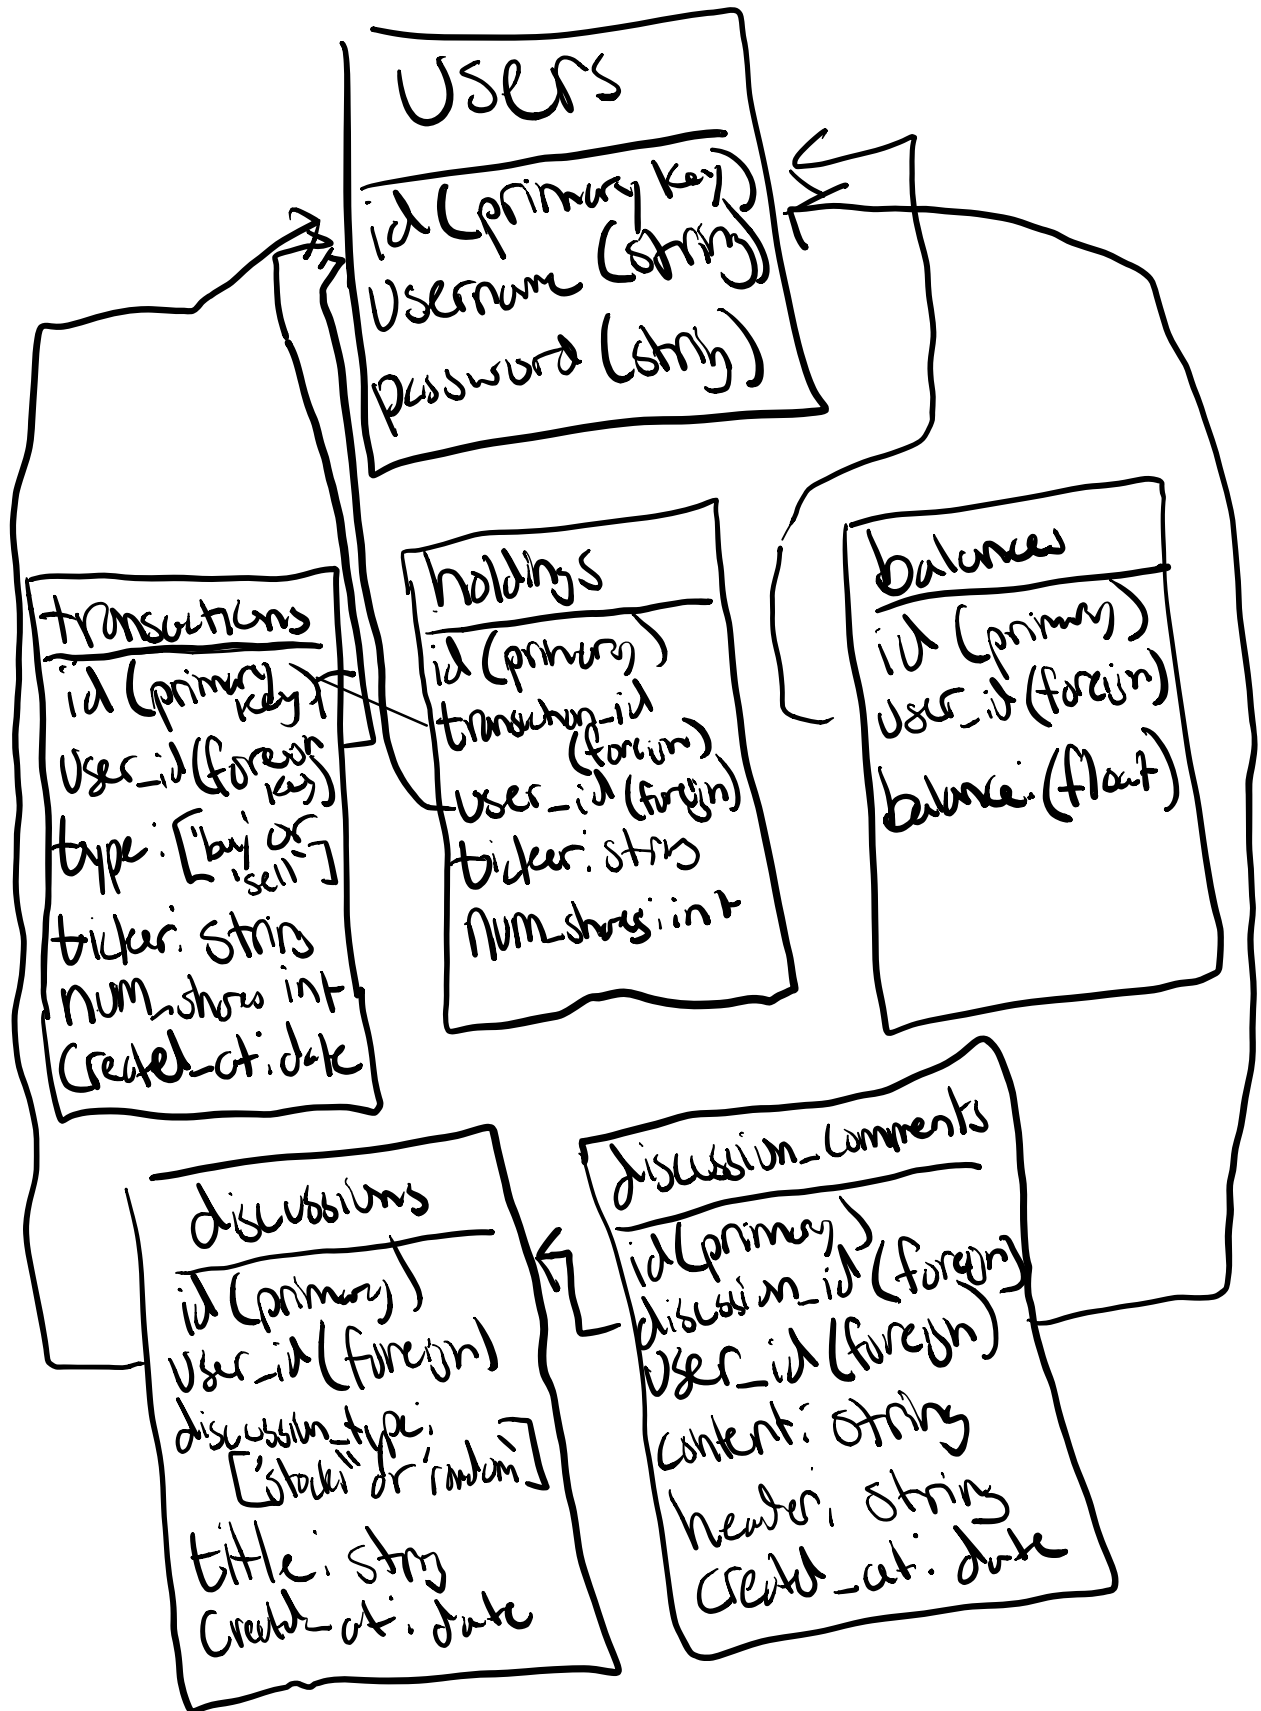 Users
id (primary key)
username (string)
password (string)
transactions
id (primary
key)
user_id (foreign
key)
type: ["buy" or
"sell"]
ticker: string
num_shares int
created_at: date
holdings
id (primary)
transaction_id
(foreign)
user_id (foreign)
ticker: string
num_shares: int
balances
id (primary)
user_id (foreign)
balance: (float)
discussions
id (primary)
user_id (foreign)
discussion_type:
["stocks" or "random"]
title: string
created_at: date
discussion_comments
id (primary)
discussion_id (foreign)
user_id (foreign)
content: string
header: string
created_at: date